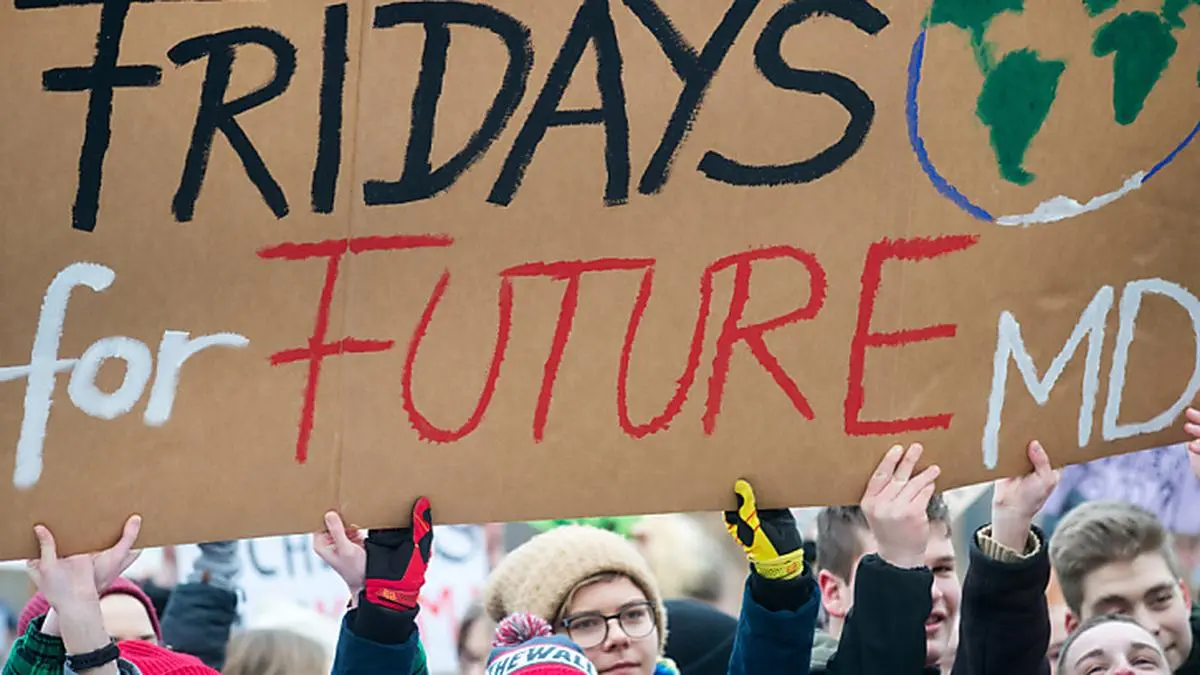 FRIDAYS
for FUTURE MD
THE WALL